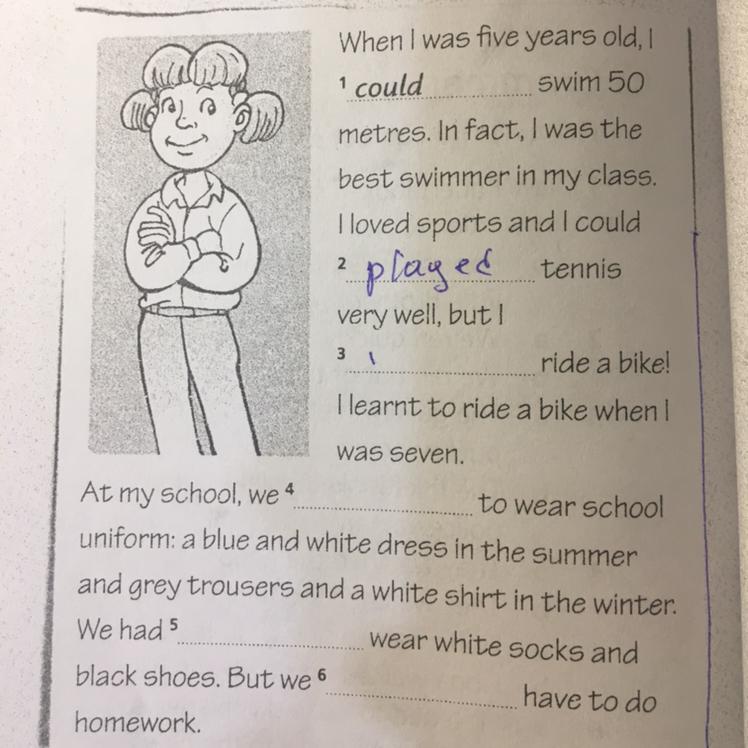 When I was five years old, I
1 could swim 50
metres. In fact, I was the
best swimmer in my class.
I loved sports and I could
2 played tennis
very well, but I
3 ride a bike!
I learnt to ride a bike when I
was seven.
At my school, we 4 to wear school
uniform: a blue and white dress in the summer
and grey trousers and a white shirt in the winter.
We had 5 wear white socks and
black shoes. But we 6 have to do
homework.